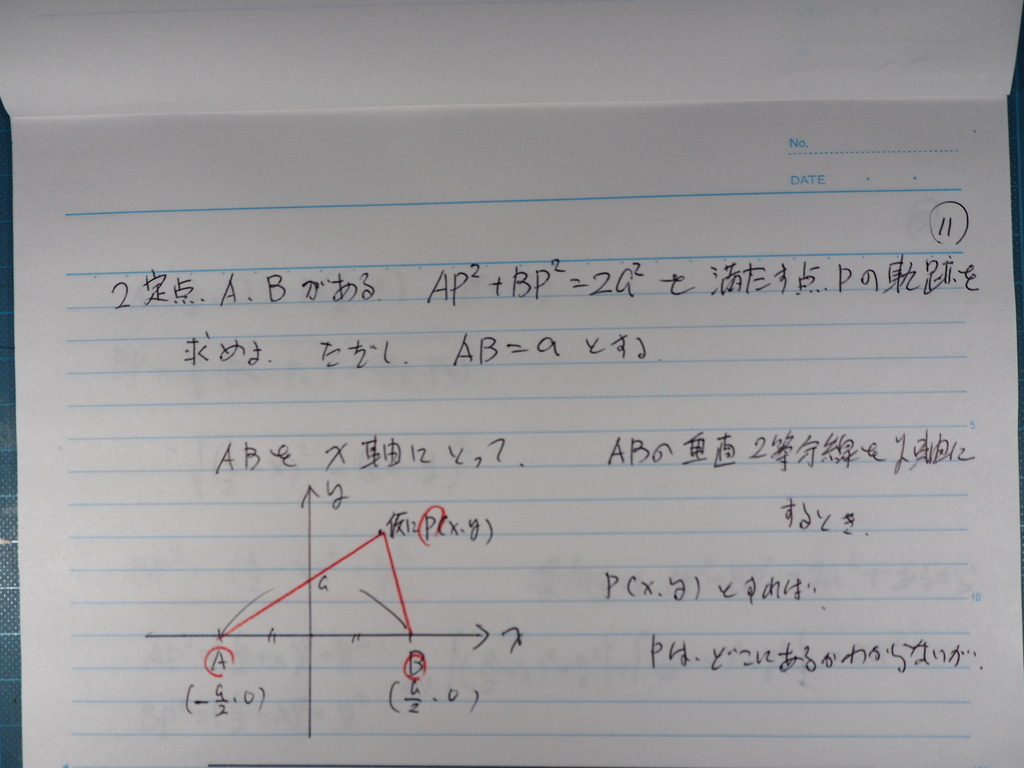 No.
DATE
11
2定点、A、Bがある AP²+BP²=2a²を満たす点Pの軌跡を
求めよ. ただし. AB=aとする
ABをx軸にとって. ABの垂直2等分線をy軸に
するとき.
y
仮にP(x、y)
a
P(x、y)とすれば..
x
A B
Pは、どこにあるかわからないが..
(-a/2、0) (a/2、0)
5
10